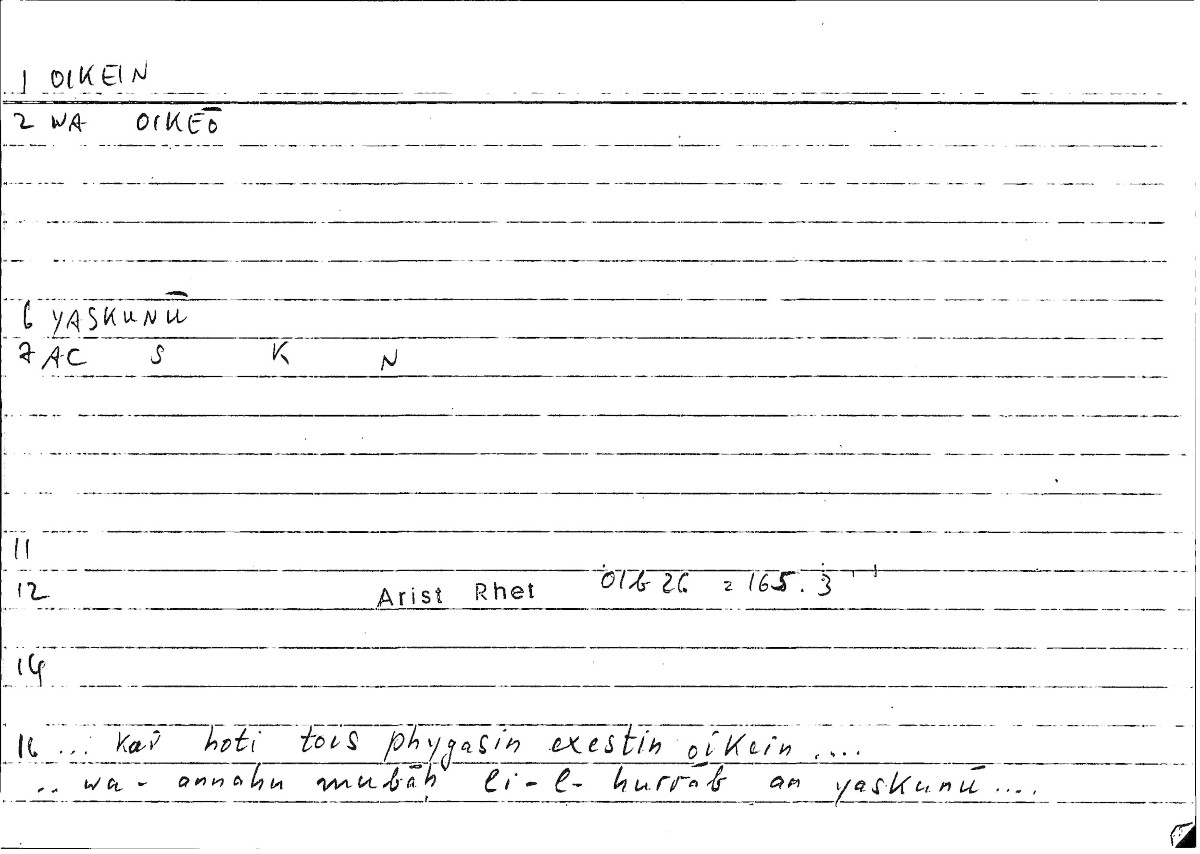 1 OIKEIN
2 WA OIKEŌ
6 YASKUNŪ
7 AC S K N
11
12 Arist Rhet 01b 26 = 165.3
14
16 ... kaì hoti tois phygasin exestin oikein ....
.. wa- annahu mubāḥ li-l- hurrāb an yaskunū ....